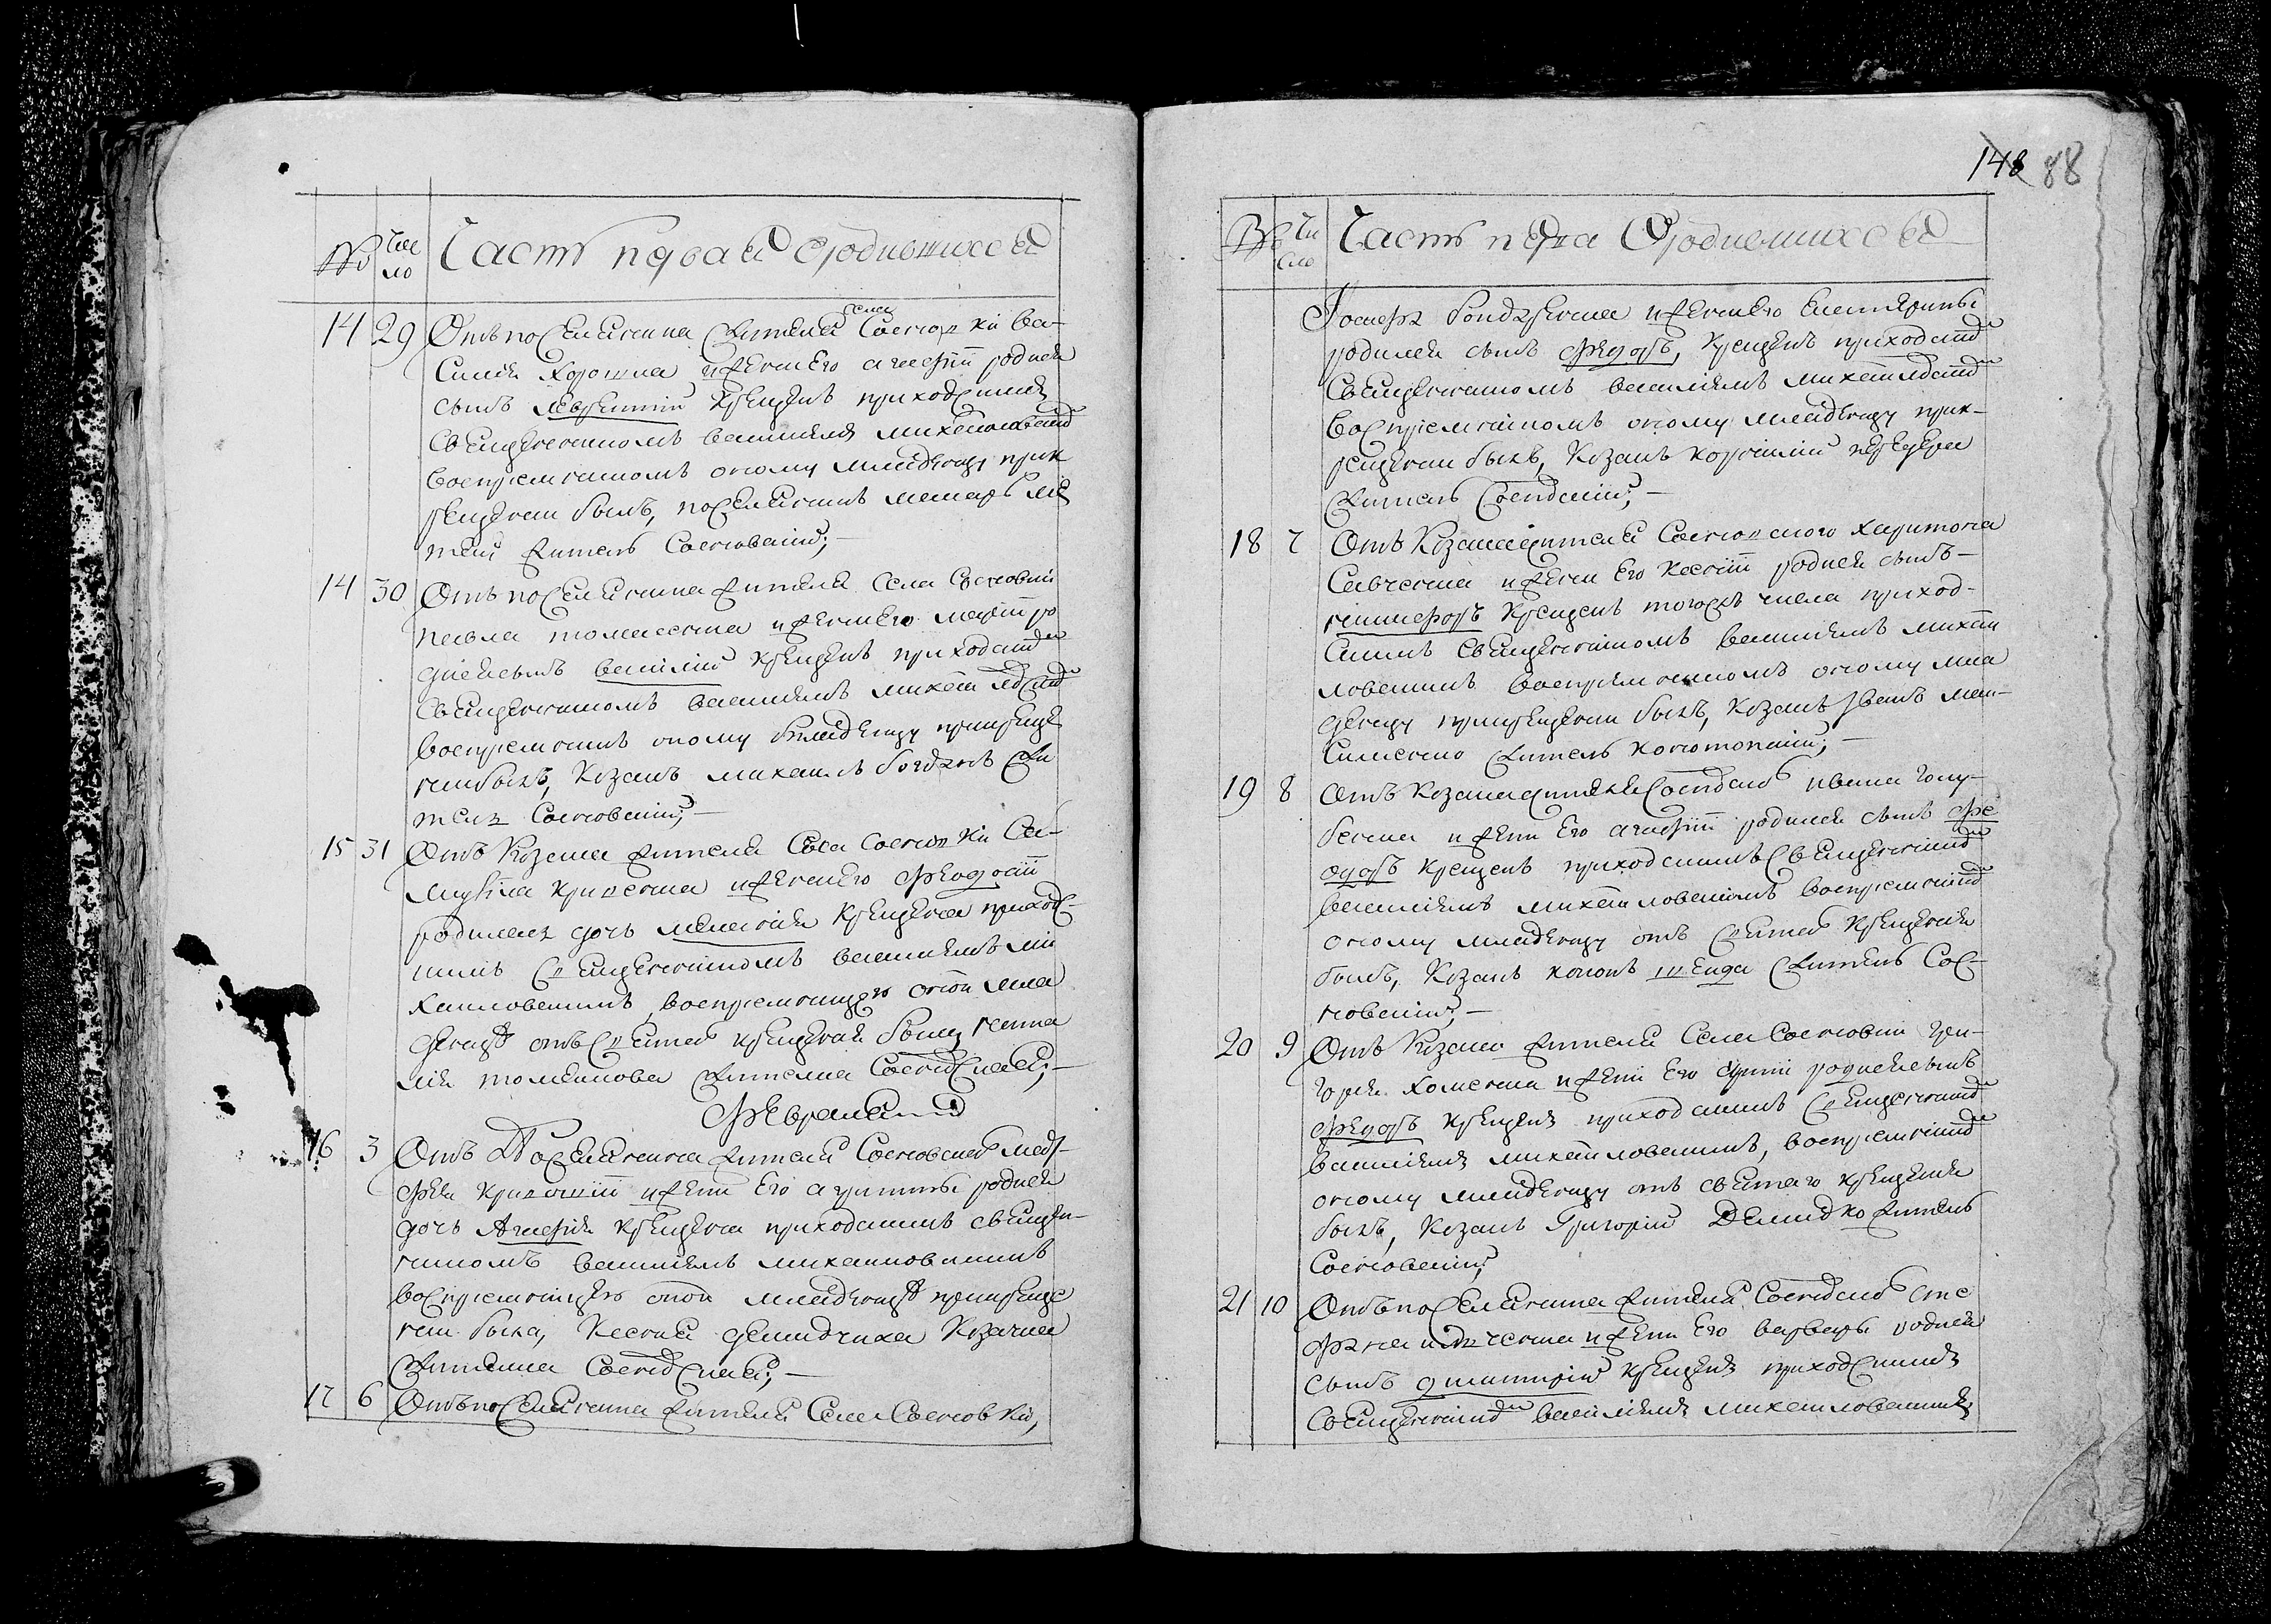 № Число Часть первая О родившихся
14 29 Отъ посполитина жителя села Сосновки Ва-
силия Хорошна и жени его Агафіи родися
сынъ Лаврентий крещенъ приходскимъ
священникомъ Василиемъ Михайловскимъ
восприемникомъ оному младенцу при к
рещении былъ, посполитинъ
житель Сосновский;—
14 30 Отъ посполитина жителя села Сосновки
Павла Томасенка и жени его Марии ро
дися сынъ Василий крещенъ приходским
священникомъ Василиемъ Михайловским
восприемникъ оному младенцу при креще
нии былъ, козакъ Михаилъ жи
тель Сосновский;—
15 31 Отъ козака жителя села Сосновки Са-
муила и жени его Феодосии
родилась дочь Мелания крещена приход-
нимъ священникомъ Василиемъ Ми
хайловскимъ, восприемницею оной мла
денца отъ святаго крещения была
жителка Сосновская;—
Февраля
16 3 Отъ посполитина жителя Сосновского Мат-
фея и жени его Агрипины родися
дочь Агафия крещена приходскимъ священ-
никомъ Василиемъ Михайловскимъ
восприемницею оной младенца при креще
нии была, Ксения Демидчиха козачка
жителка Сосновская;—
17 6 Отъ посполитина жителя села Сосновки,
148 88
№ Число Часть перва О родившихся
Іосифа Бондаренка и жени его Екатерины
родился сынъ Федоръ, крещенъ приходским
священникомъ Василиемъ Михайловским
восприемникомъ оному младенцу при к-
рещении былъ, козакъ Корнилий
житель Сосновский;—
18 7 Отъ козака жителя Сосновского Харитона
Савченка и жени его Ксении родися сынъ
Никифоръ крещенъ того жъ числа приход-
скимъ священникомъ Василиемъ Михай
ловскимъ восприемникомъ оному мла
денцу при крещении былъ, козакъ Иванъ Мак-
сименко житель Конотопский;—
19 8 Отъ козака жителя Сосновского Ивана Голу-
бенка и жени его Агафии родился сынъ Фе
одоръ крещенъ приходскимъ священником
Василиемъ Михайловскимъ восприемником
оному младенцу отъ святаго крещения
былъ, козакъ Кононъ Шенда житель Сос-
новский;—
20 9 Отъ козака жителя села Сосновки Гри-
гория Хоменка и жени его Ирини родися сынъ
Федоръ крещенъ приходскимъ священником
Василиемъ Михайловскимъ, восприемником
оному младенцу отъ святаго крещения
былъ, козакъ Григорий Демидко житель
Сосновский;
21 10 Отъ посполитина жителя Сосновского Сте
фана и жени его Варвары родися
сынъ Димитрий крещенъ приходскимъ
священником Василиемъ Михайловскимъ